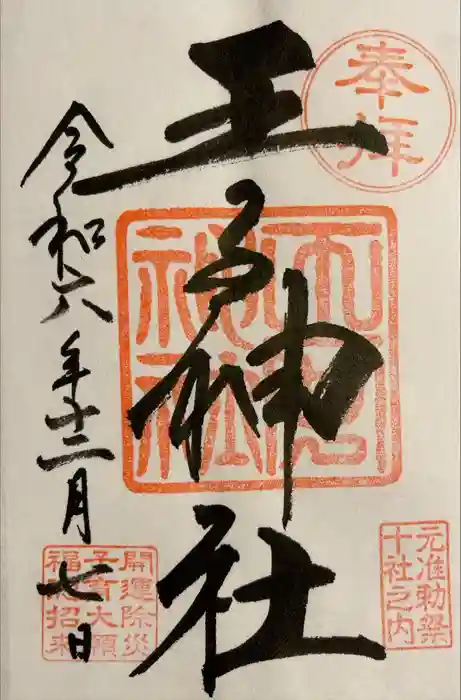 奉拝
王子神社
王子神社
元准勅祭
十社之内
令和六年十二月七日
開運除災
子育大願
福徳招来